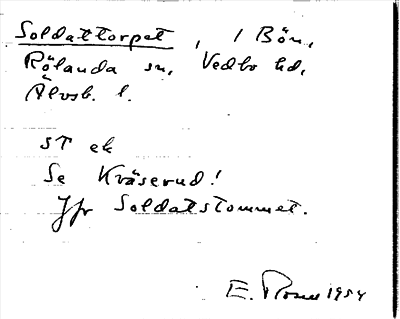 Soldattorpet, i Bön,
Rölanda sn, Vedbo hd,
Älvsb. l.
ST ek
Se Kväserud!
Jfr Soldatstommet.
E. 1954